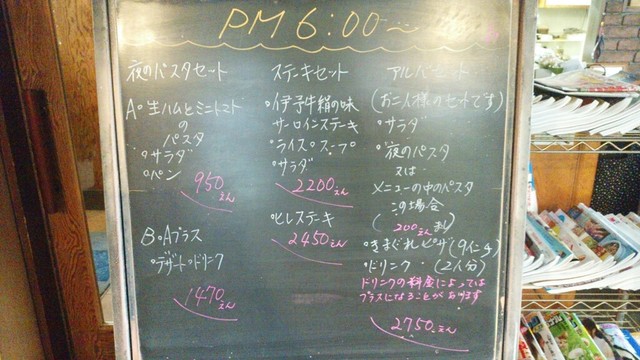 PM 6:00～
夜のパスタセット
A° 生ハムとミニトマト
の
パスタ
°サラダ
°パン
950えん
B°Aプラス
デザート°ドリンク
1470えん
ステーキセット
°伊予牛絹の味
サーロインステーキ
°ライス°スープ
°サラダ
2200えん
°ヒレステーキ
2450えん
(お二人様のセットです)
°サラダ
°夜のパスタ
又は
メニューの中のパスタ
この場合
(200えんまし)
°きまぐれピザ(9インチ)
°ドリンク・(2人分)
ドリンクの料金によっては
プラスになることがあります
2750えん